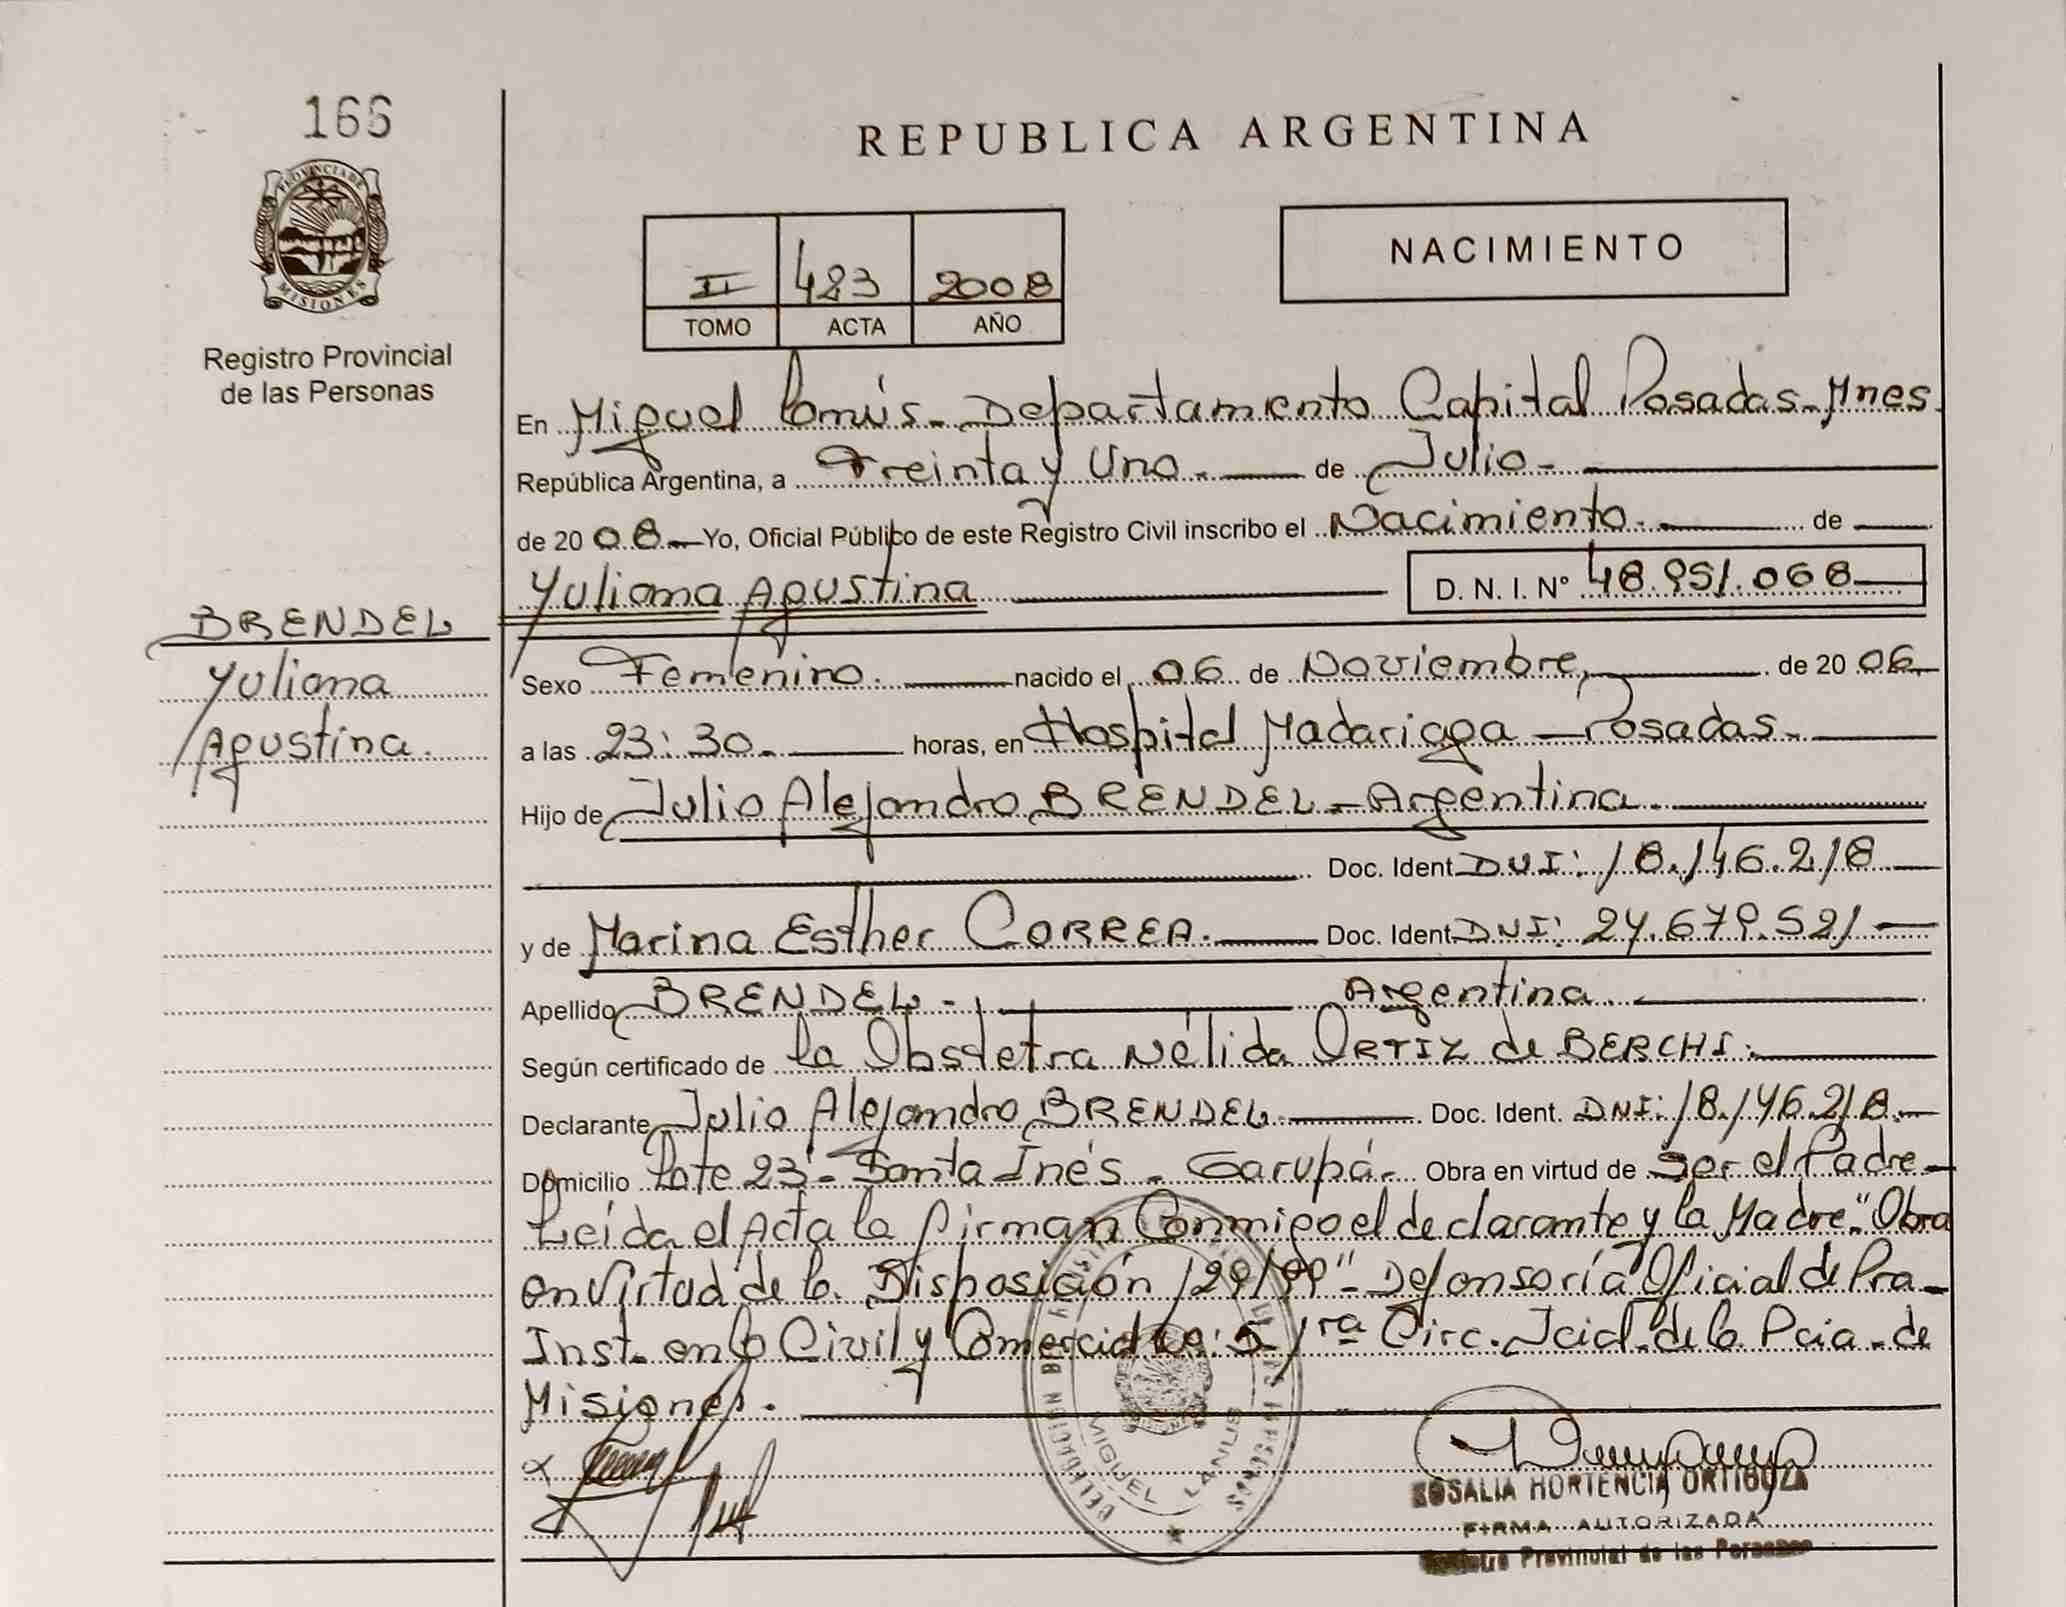 166
PROVINCIA DE
MISIONES
Registro Provincial
de las Personas
REPUBLICA ARGENTINA
NACIMIENTO
II 423 2008
TOMO ACTA AÑO
En Miguel Lanús - Departamento Capital Posadas - Mnes.
República Argentina, a Treinta y Uno. de Julio -
de 2008 Yo, Oficial Público de este Registro Civil inscribo el Nacimiento. de
Yuliana Agustina D. N. I. Nº 48.951.068
BRENDEL
Yuliana
Agustina.
Sexo Femenino. nacido el 06 de Noviembre, de 2006
a las 23:30. horas, en Hospital Madariaga - Posadas.
Hijo de Julio Alejandro BRENDEL - Argentina.
Doc. Ident. DNI: 18.146.218
y de Marina Esther CORREA. Doc. Ident. DNI: 24.679.521
Apellido BRENDEL - Argentina.
Según certificado de la Obstetra Nélida ORTIZ de BERCHI.
Declarante Julio Alejandro BRENDEL Doc. Ident. DNI: 18.146.218.
Domicilio Lote 23 - Santa Inés - Garupá - Obra en virtud de Ser el Padre -
Leída el Acta la firman Conmigo el declarante y la Madre. "Obra
en Virtud de la Disposición 129/99" - Defensoría Oficial de Pra -
Inst. en lo Civil y Comercial No: 5 1ra Circ. Jcial. de la Pcia. de
Misiones.
MIGUEL LANUS
ROSALIA HORTENCIA ORTIGOZA
FIRMA AUTORIZADA
Registro Provincial de las Personas